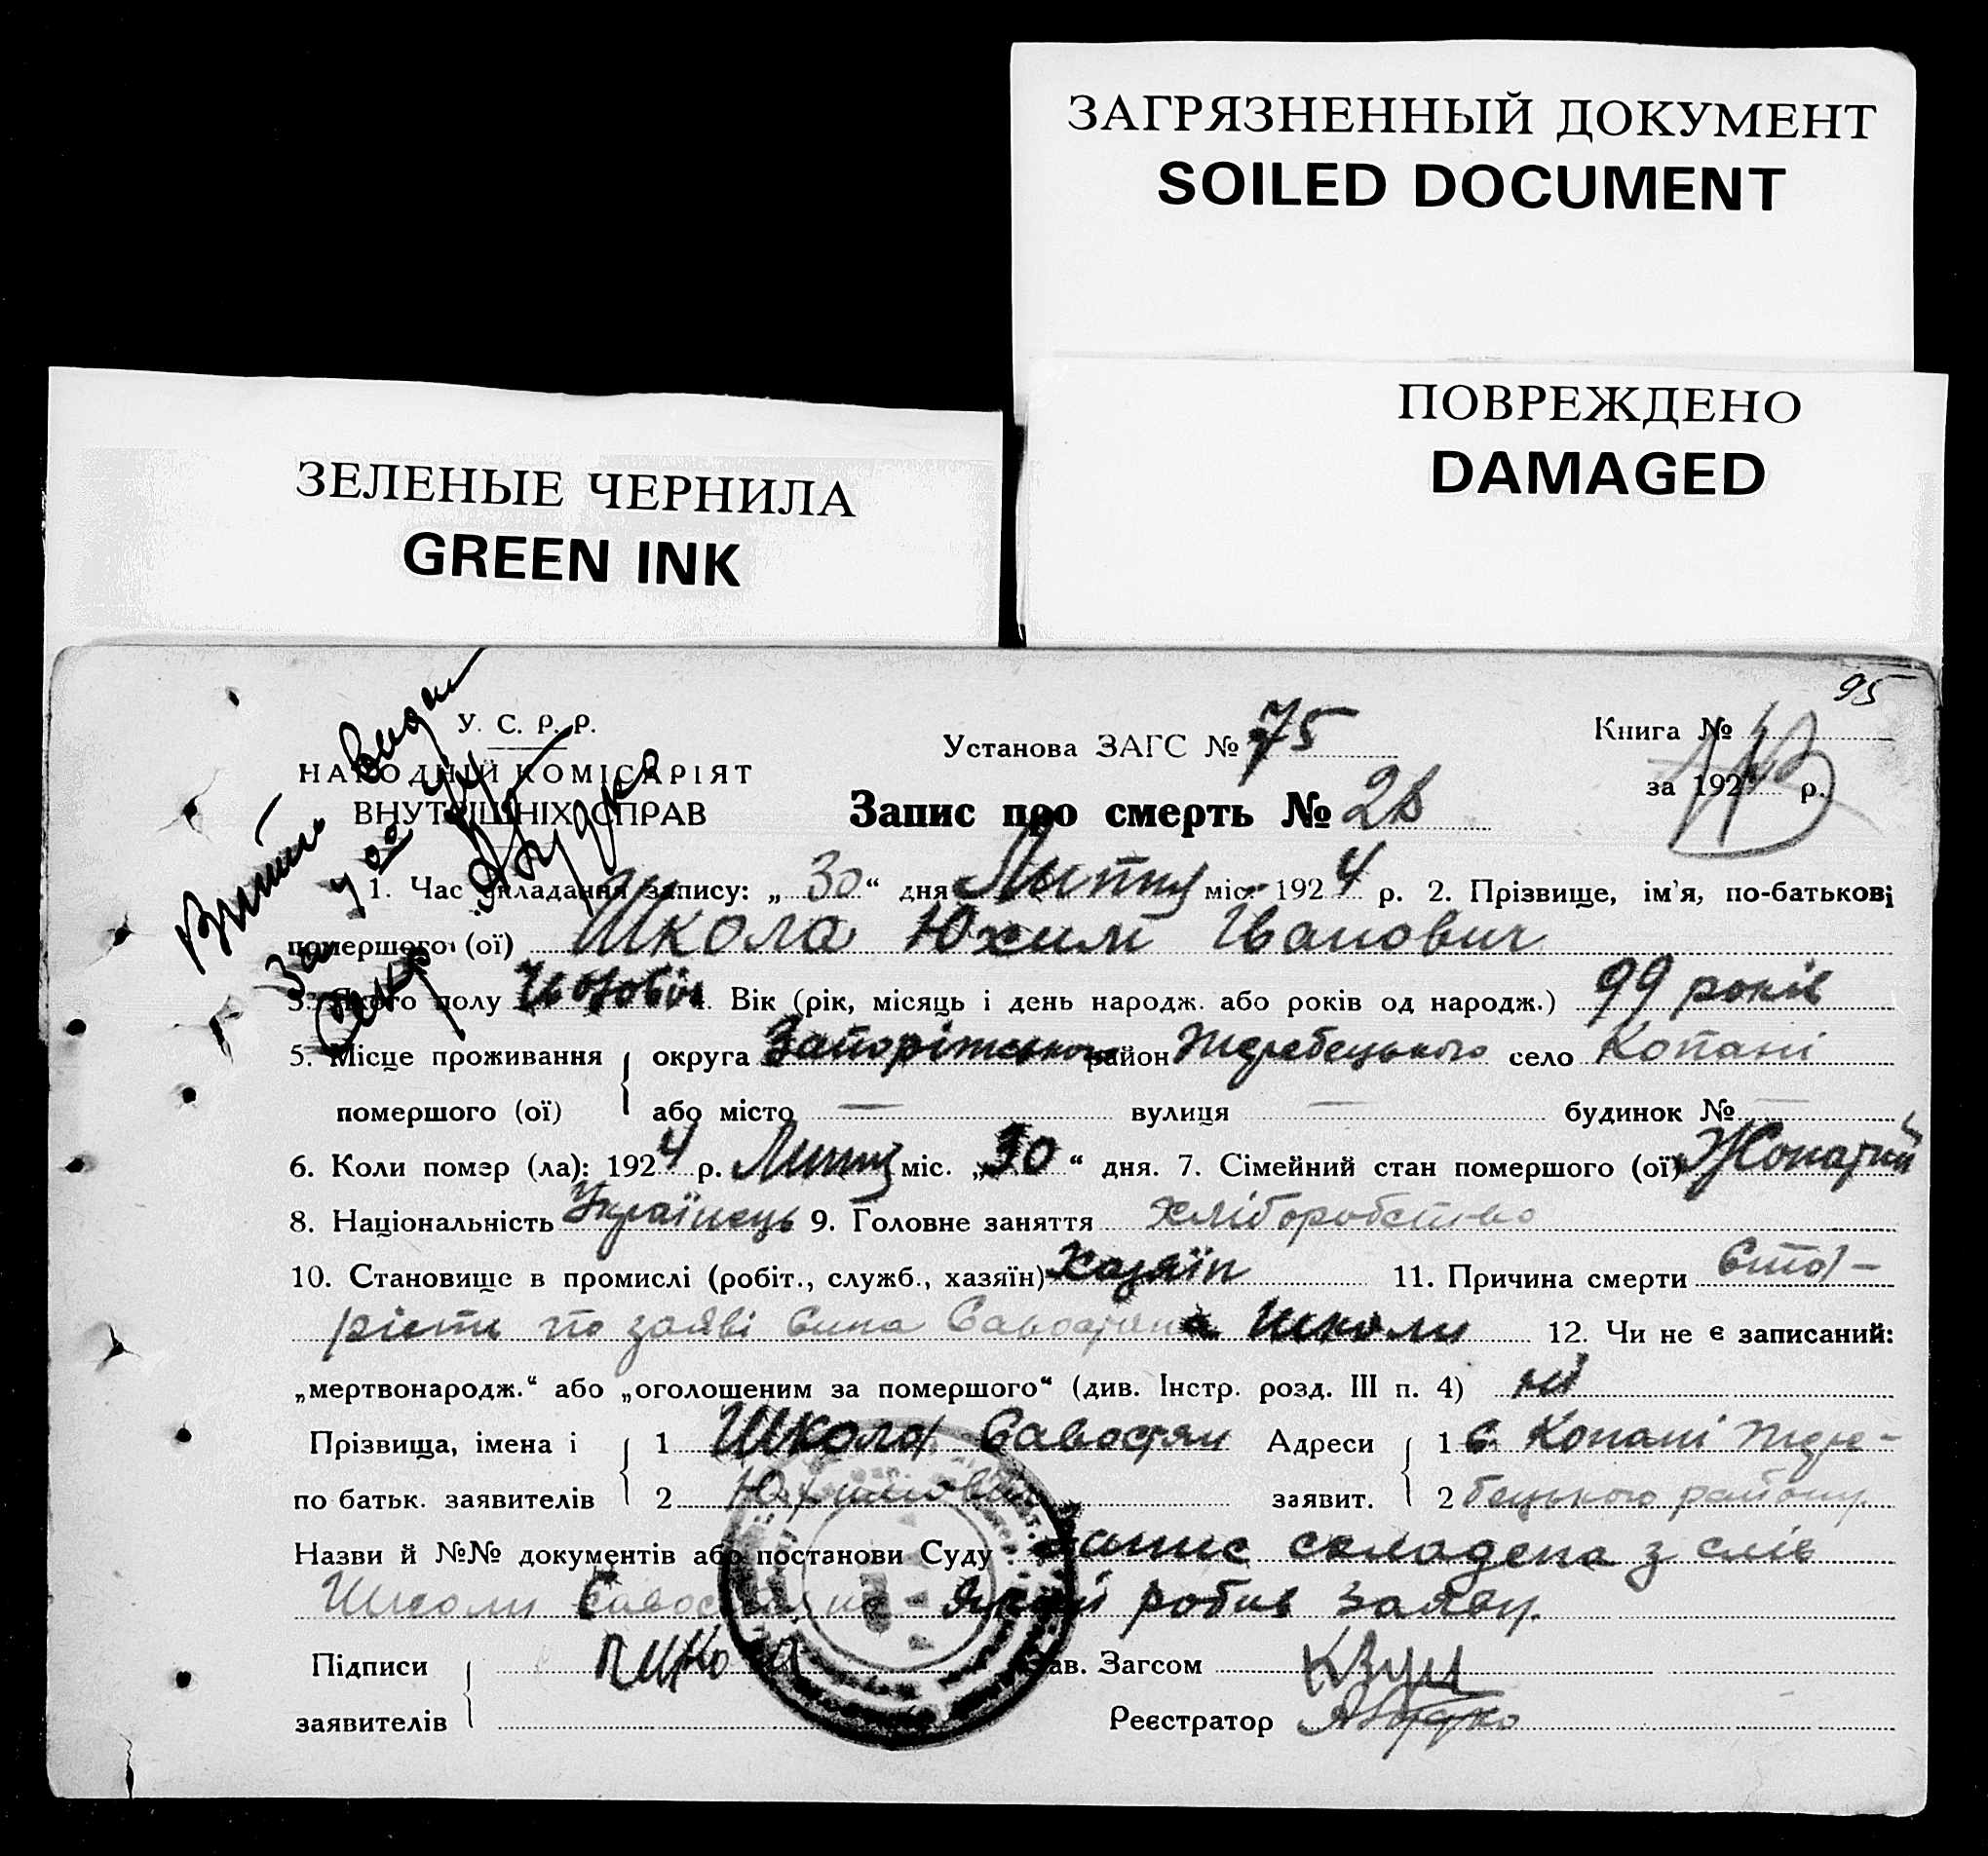 ЗАГРЯЗНЕННЫЙ ДОКУМЕНТ
SOILED DOCUMENT
ПОВРЕЖДЕНО
DAMAGED
ЗЕЛЕНЫЕ ЧЕРНИЛА
GREEN INK
95
У. С. Р. Р.
НАРОДНІЙ КОМІСАРІЯТ
ВНУТРІШНІХ СПРАВ
Установа ЗАГС № 75
Книга №
за 192 р.
Запис про смерть № 28
1. Час складання запису: „ 30 “ дня Липня міс. 1924 р. 2. Прізвище, ім'я, по-батькові
помершого (ої) Школа Юхим Іванович
3. Якого полу Чоловіч. Вік (рік, місяць і день народж. або років од народж.) 99 років
5. Місце проживання округа Запоріжського район Жеребецького село Копані
помершого (ої) або місто — вулиця — будинок № —
6. Коли помер (ла): 1924 р. Липня міс. „30“ дня. 7. Сімейний стан помершого (ої) Жонатий
8. Національність Українець 9. Головне заняття хліборобство
10. Становище в промислі (робіт., служб., хазяїн) Хазяїн 11. Причина смерти Ста-
рість по заяві сина Савостяна Школи 12. Чи не є записаний:
„мертвонародж.“ або „оголошеним за помершого“ (див. Інстр. розд. III п. 4) ні
Прізвища, імена і 1 Школа Савостян Адреси 1 с. Копані Жере-
по батьк. заявителів 2 Юхимович заявит. 2 бецького району
Назви й №№ документів або постанови Суду: Запис складена з слів
Школи Савостяна який робив заяву.
Підписи Школа Зав. Загсом
заявителів Реєстратор